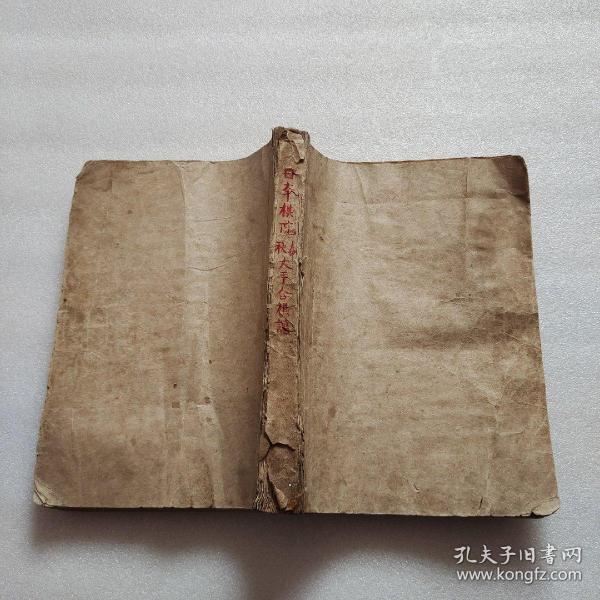 日本棋院春秋大手合棋譜
孔夫子旧書网
www.kongfz.com